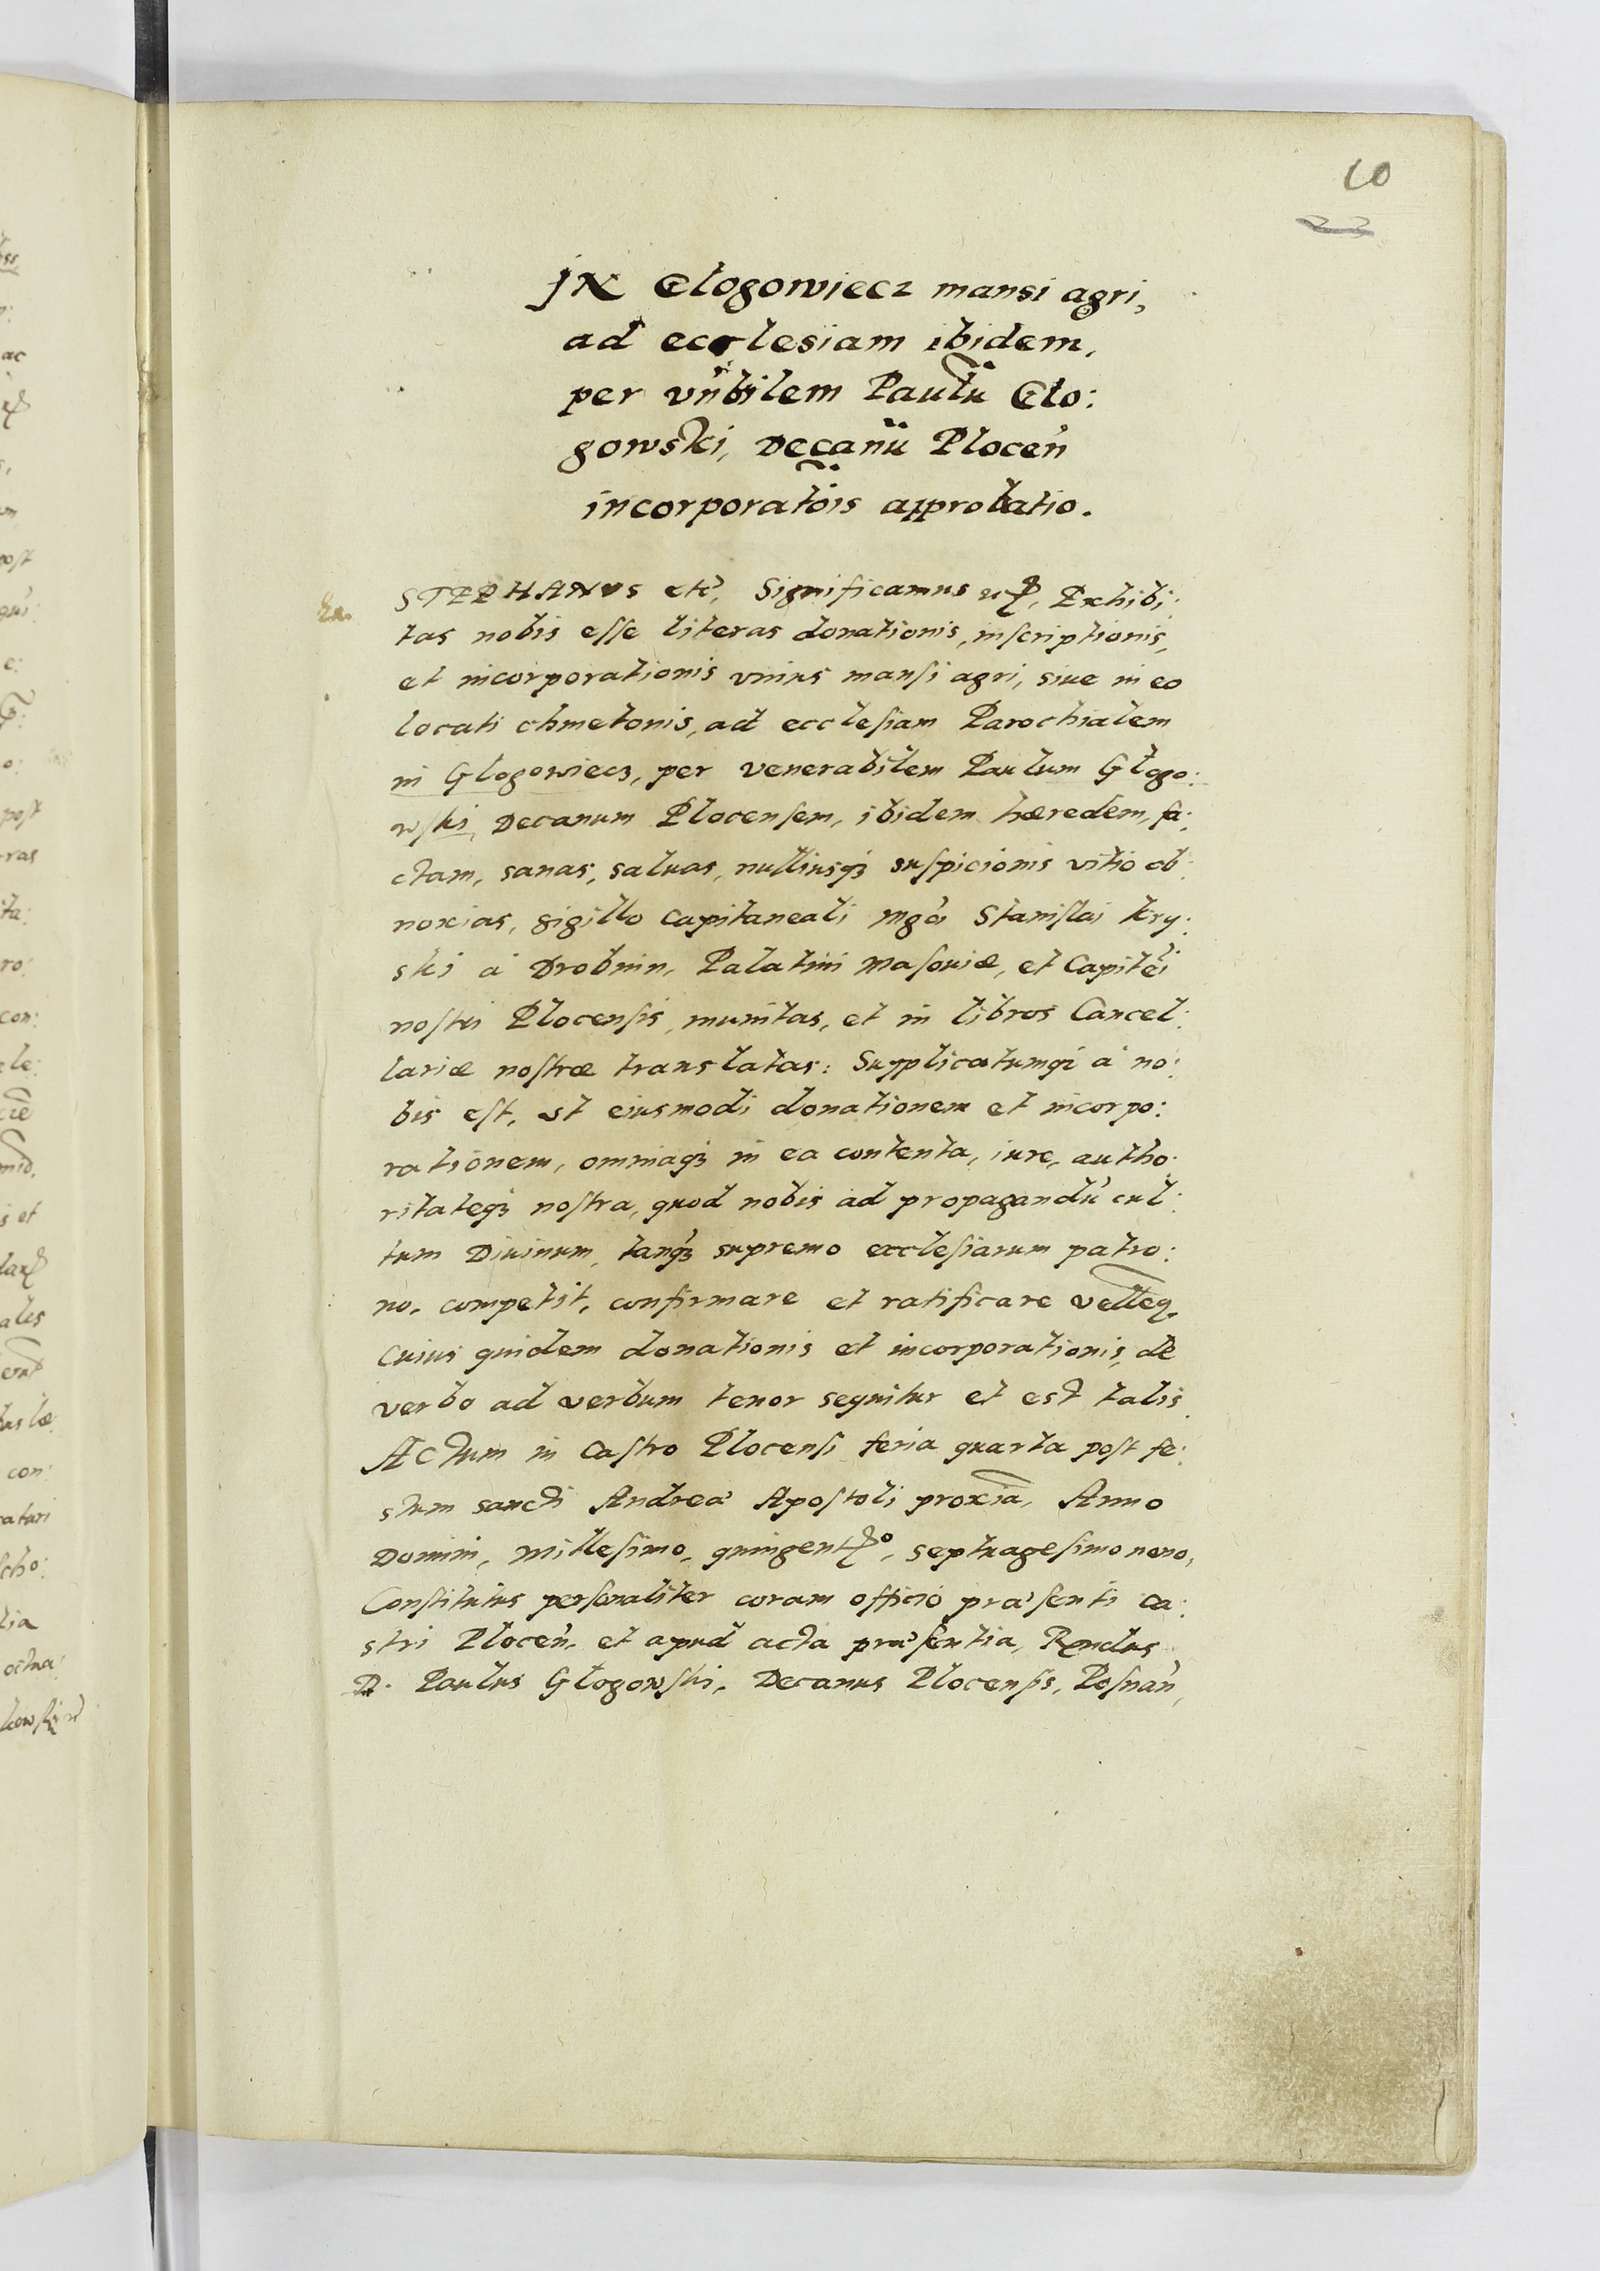 10
23
IN Glogowiecz mansi agri,
ad ecclesiam ibidem,
per vn̄bilem Paulũ Glo:
gowski, Decanũ Plocen̄
incorporatõis approbatio.
STEPHANVS etc̃, Significamus Exhibi:
tas nobis eſſe literas donationis, inſcriptionis,
et incorporationis vnius manſi agri, siue in eo
locati chmetonis, ad eccleſiam Parochialem
in Glogowiecz, per venerabilem Paulum Glogo:
wſki, Decanum Plocenſem, ibidem hæredem, fa:
ctam, sanas, saluas, nulliusqȝ suſpicionis vitio ob:
noxias, sigillo Capitaneali Mgci Staniſlai Kry:
ski à Drobnin, Palatini Maſouiæ, et Capitei
noſtri Plocenſis, munitas, et in libros Cancel:
lariæ noſtræ translatas: Supplicatumqȝ à no:
bis eſt, vt eiusmodi donationem et incorpo:
rationem, omniaqȝ in ea contenta, iure, autho:
ritateqȝ noſtra, quod nobis ad propagandũ cul:
tum Diuinum, tanqȝ supremo eccleſiarum patro:
no, competit, confirmare et ratificare velleq̃.
Cuius quidem donationis et incorporationis, de
verbo ad verbum tenor sequitur et est talis.
Actum in Caſtro Plocenſi feria quarta poſt fe:
stum sancti Andreæ Apoſtoli proxiã, Anno
Domini, Milleſimo, quingentꝭo, septuageſimo nono,
Conſtitutus perſonaliter coram officio præſenti Ca:
stri Plocen̄, et apud acta præſentia, Rendus
D. Paulus Glogowſki, Decanus Plocenſis, Poſnan̄,